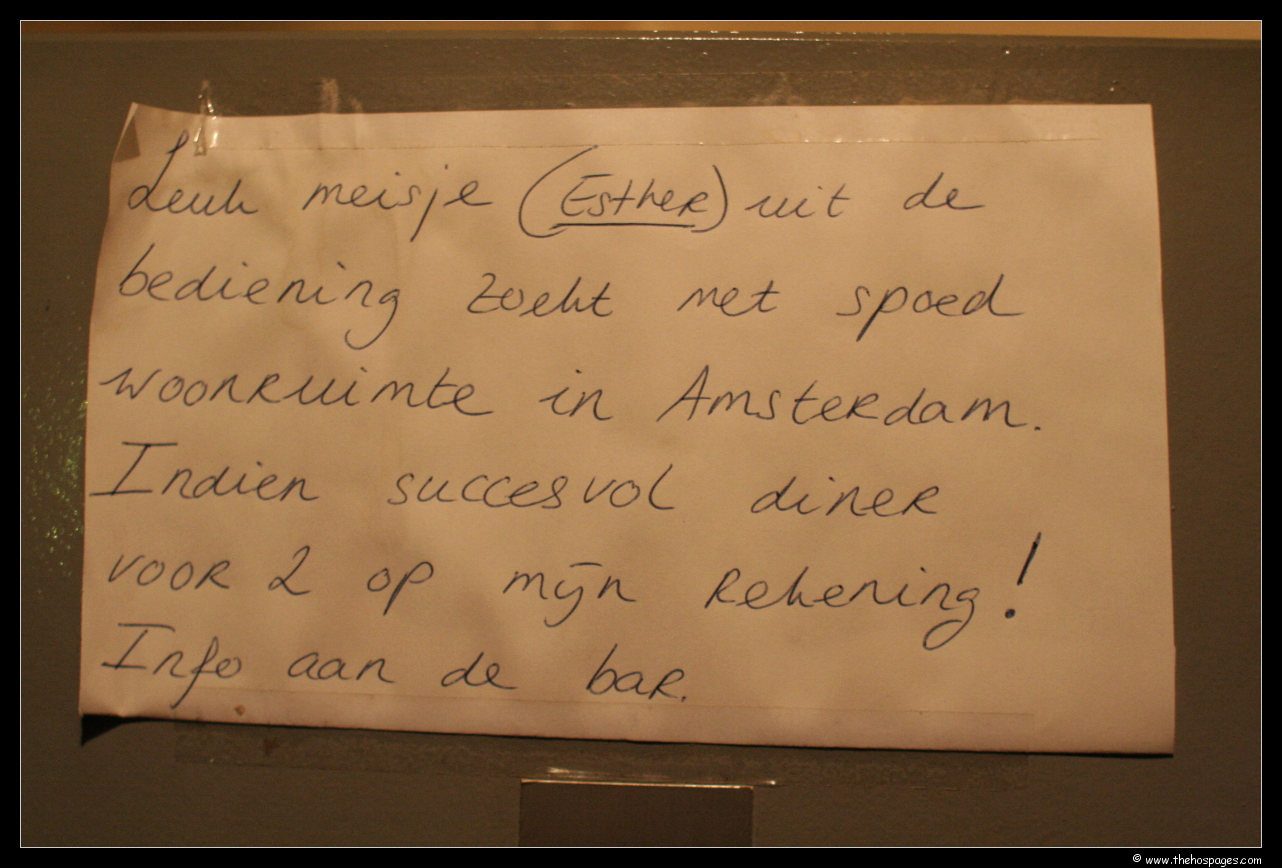 Leuk meisje (Esther) uit de
bediening zoekt met spoed
woonruimte in Amsterdam.
Indien succesvol diner
voor 2 op mijn rekening!
Info aan de bar.
© www.thehospages.com